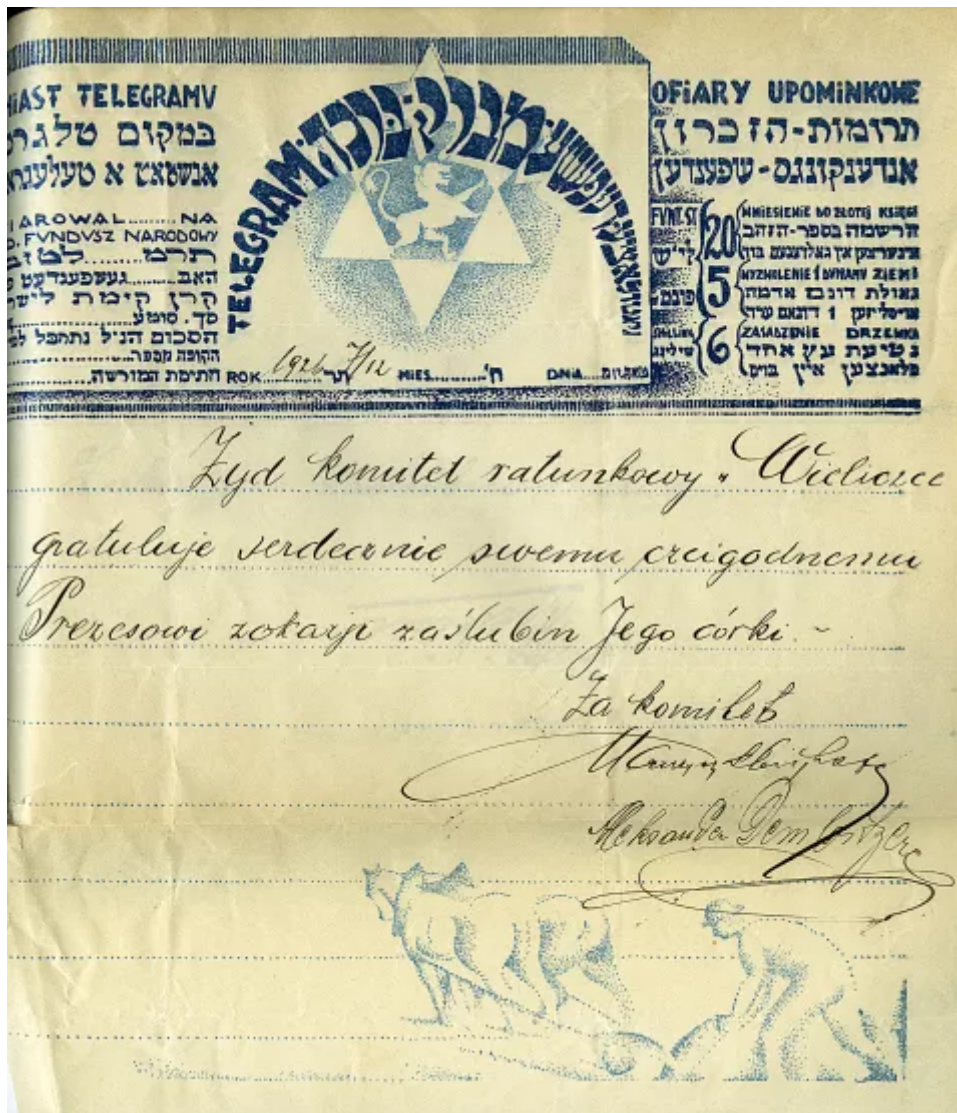 IAST TELEGRAMU
במקום טלגר
אנשטאט א טעלעגרא
AROWAL........NA
FUNDUSZ NARODOWY
תרמ........לט
האב........געשפענדעט
קרן קימת לישר
סך. סומע........
הסכום הנ״ל נתקבל
הקופה מספר........
חתימת המורשה........
TELEGRAM·מברק·ברכה·
ROK 1926 7/12 MIES........ DNIA....
OFIARY UPOMINKOWE
תרומות-הזכרון
אנדענקונגס-שפענדען
FUNT. ST
20
WNIESIENIE DO ZŁOTEJ KSIĘGI
הרשמה בספר-הזהב
5
WYZWOLENIE 1 DUNAMU ZIEMI
גאולת דונם אדמה
6
ZASADZENIE DRZEWKA
נטיעת עץ אחד
פלאנצען איין בוים
Żyd komitet ratunkowy w Wieliczce
gratuluje serdecznie swemu czcigodnemu
Prezesowi z okazji zaślubin Jego córki.~
Za komitet
Aleksander